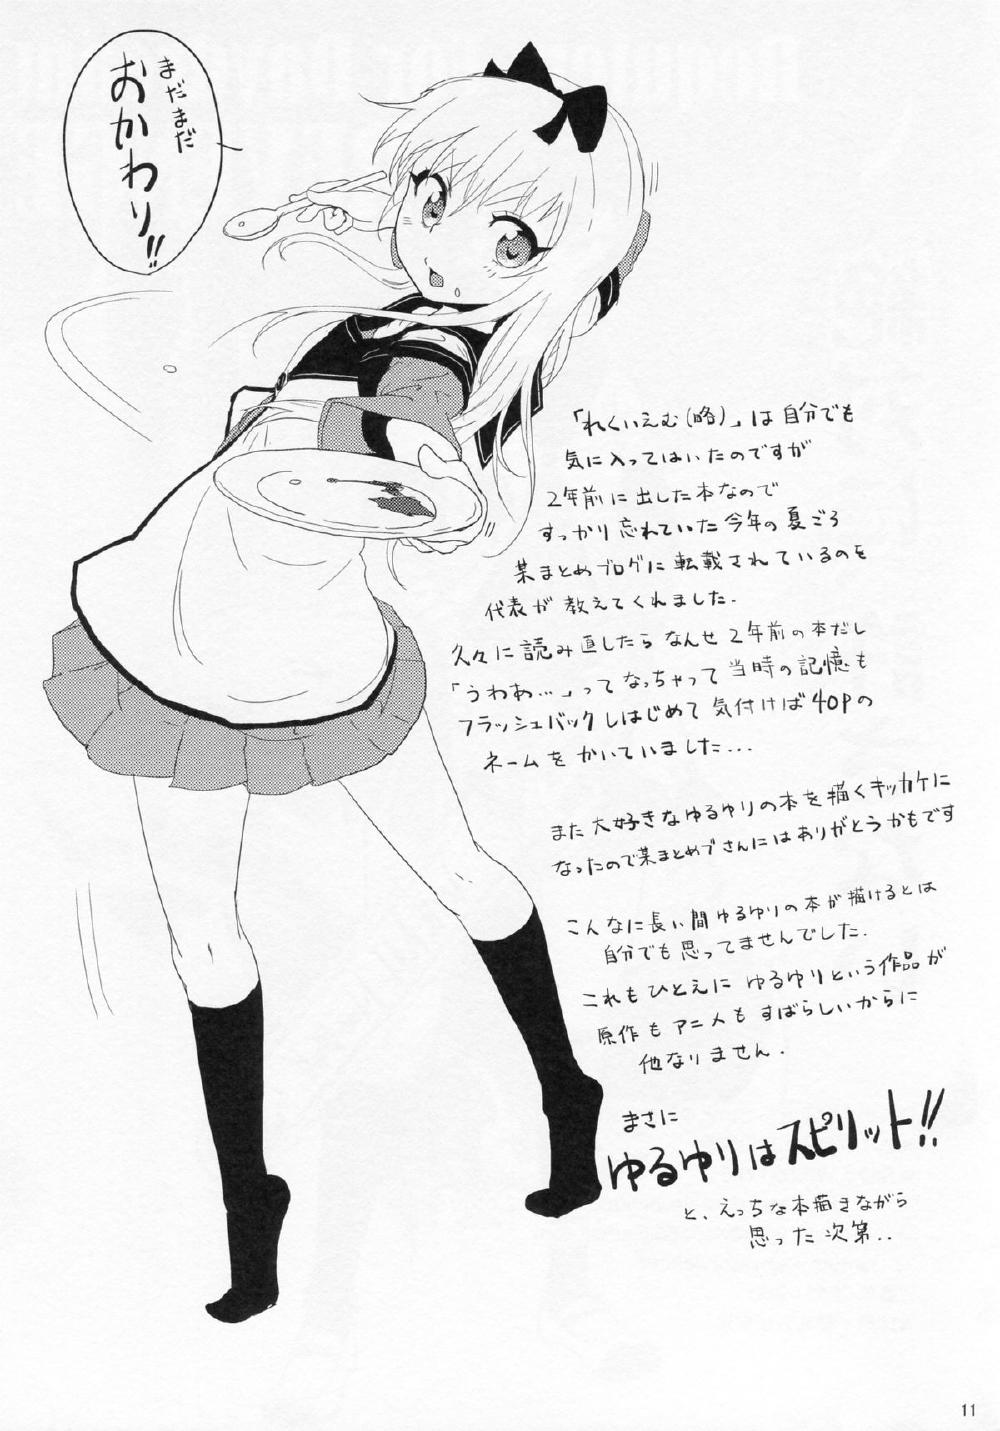 まだまだ
おかわり!!
「れくいえむ(略)」は自分でも
気に入ってはいたのですが
2年前に出した本なので
すっかり忘れていた今年の夏ごろ
某まとめブログに転載されているのを
代表が教えてくれました.
久々に読み直したらなんせ2年前の本だし
「うわあ…」ってなっちゃって当時の記憶も
フラッシュバックしはじめて気付けば40Pの
ネームをかいていました...
また大好きなゆるゆりの本を描くキッカケに
なったので某まとめブさんにはありがとうかもです
こんなに長い間ゆるゆりの本が描けるとは
自分でも思ってませんでした.
これもひとえにゆるゆりという作品が
原作もアニメもすばらしいからに
他なりません.
まさに
ゆるゆりはスピリット!!
と、えっちな本描きながら
思った次第..
11